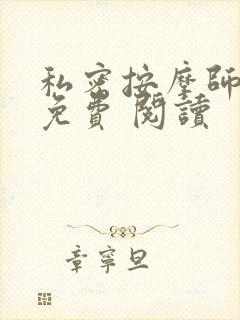 私密按摩師
免費 閱讀
章寧旦